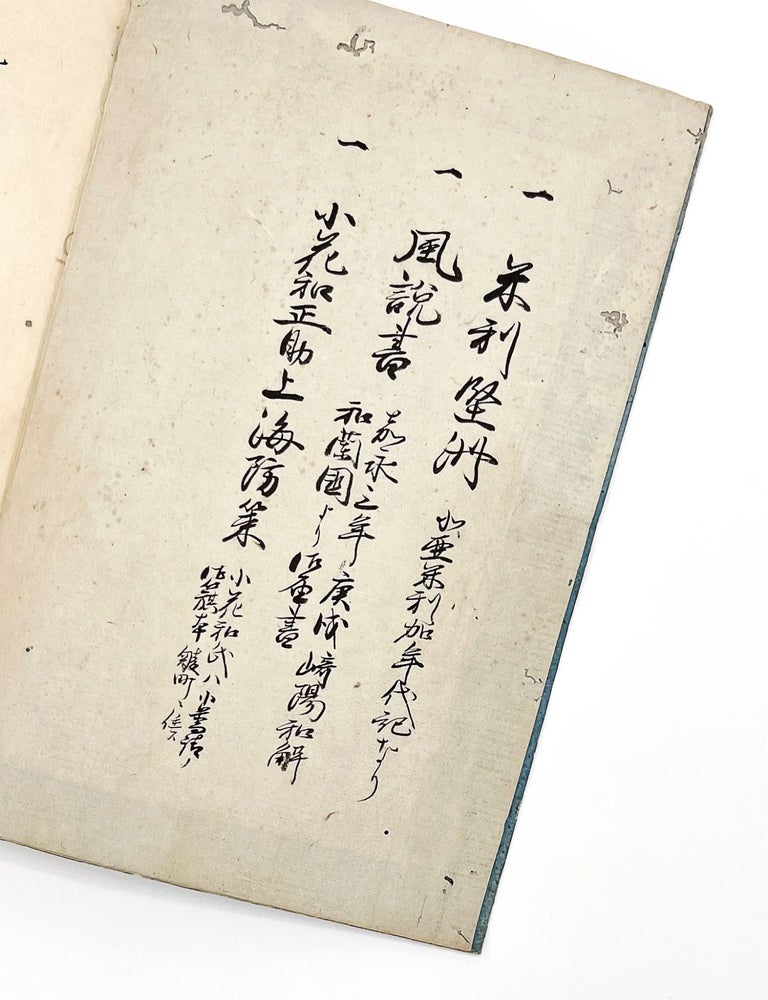 一 米利堅洲 北亜米利加年代記なり
一 風説書 嘉永三年庚戌崎陽和解
和蘭國より
一 小花和正助上海防策 小花和氏ハ小普請ノ
御旗本 雉町ニ住ス